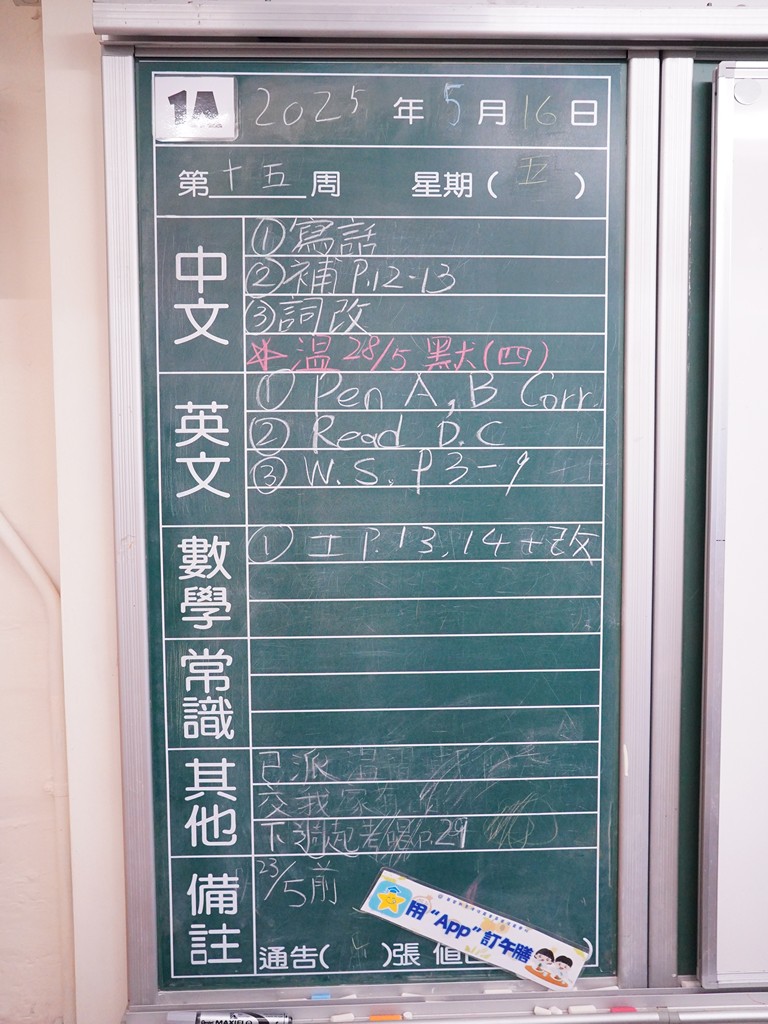 1A 2025 年 5 月 16 日
第 十五 周 星期( 五 )
中文
①寫話
②補 P.12-13
③詞改
* 溫 28/5 默(四)
英文
① Pen A, B Corr.
② Read D.C
③ W.S. P3-9
數學
① 工 P. 13, 14 + 改
常識
其他
已派
交我家
下週起 P.29
備註
23/5前
通告( )張
用“App”訂午膳
MAXIFLO